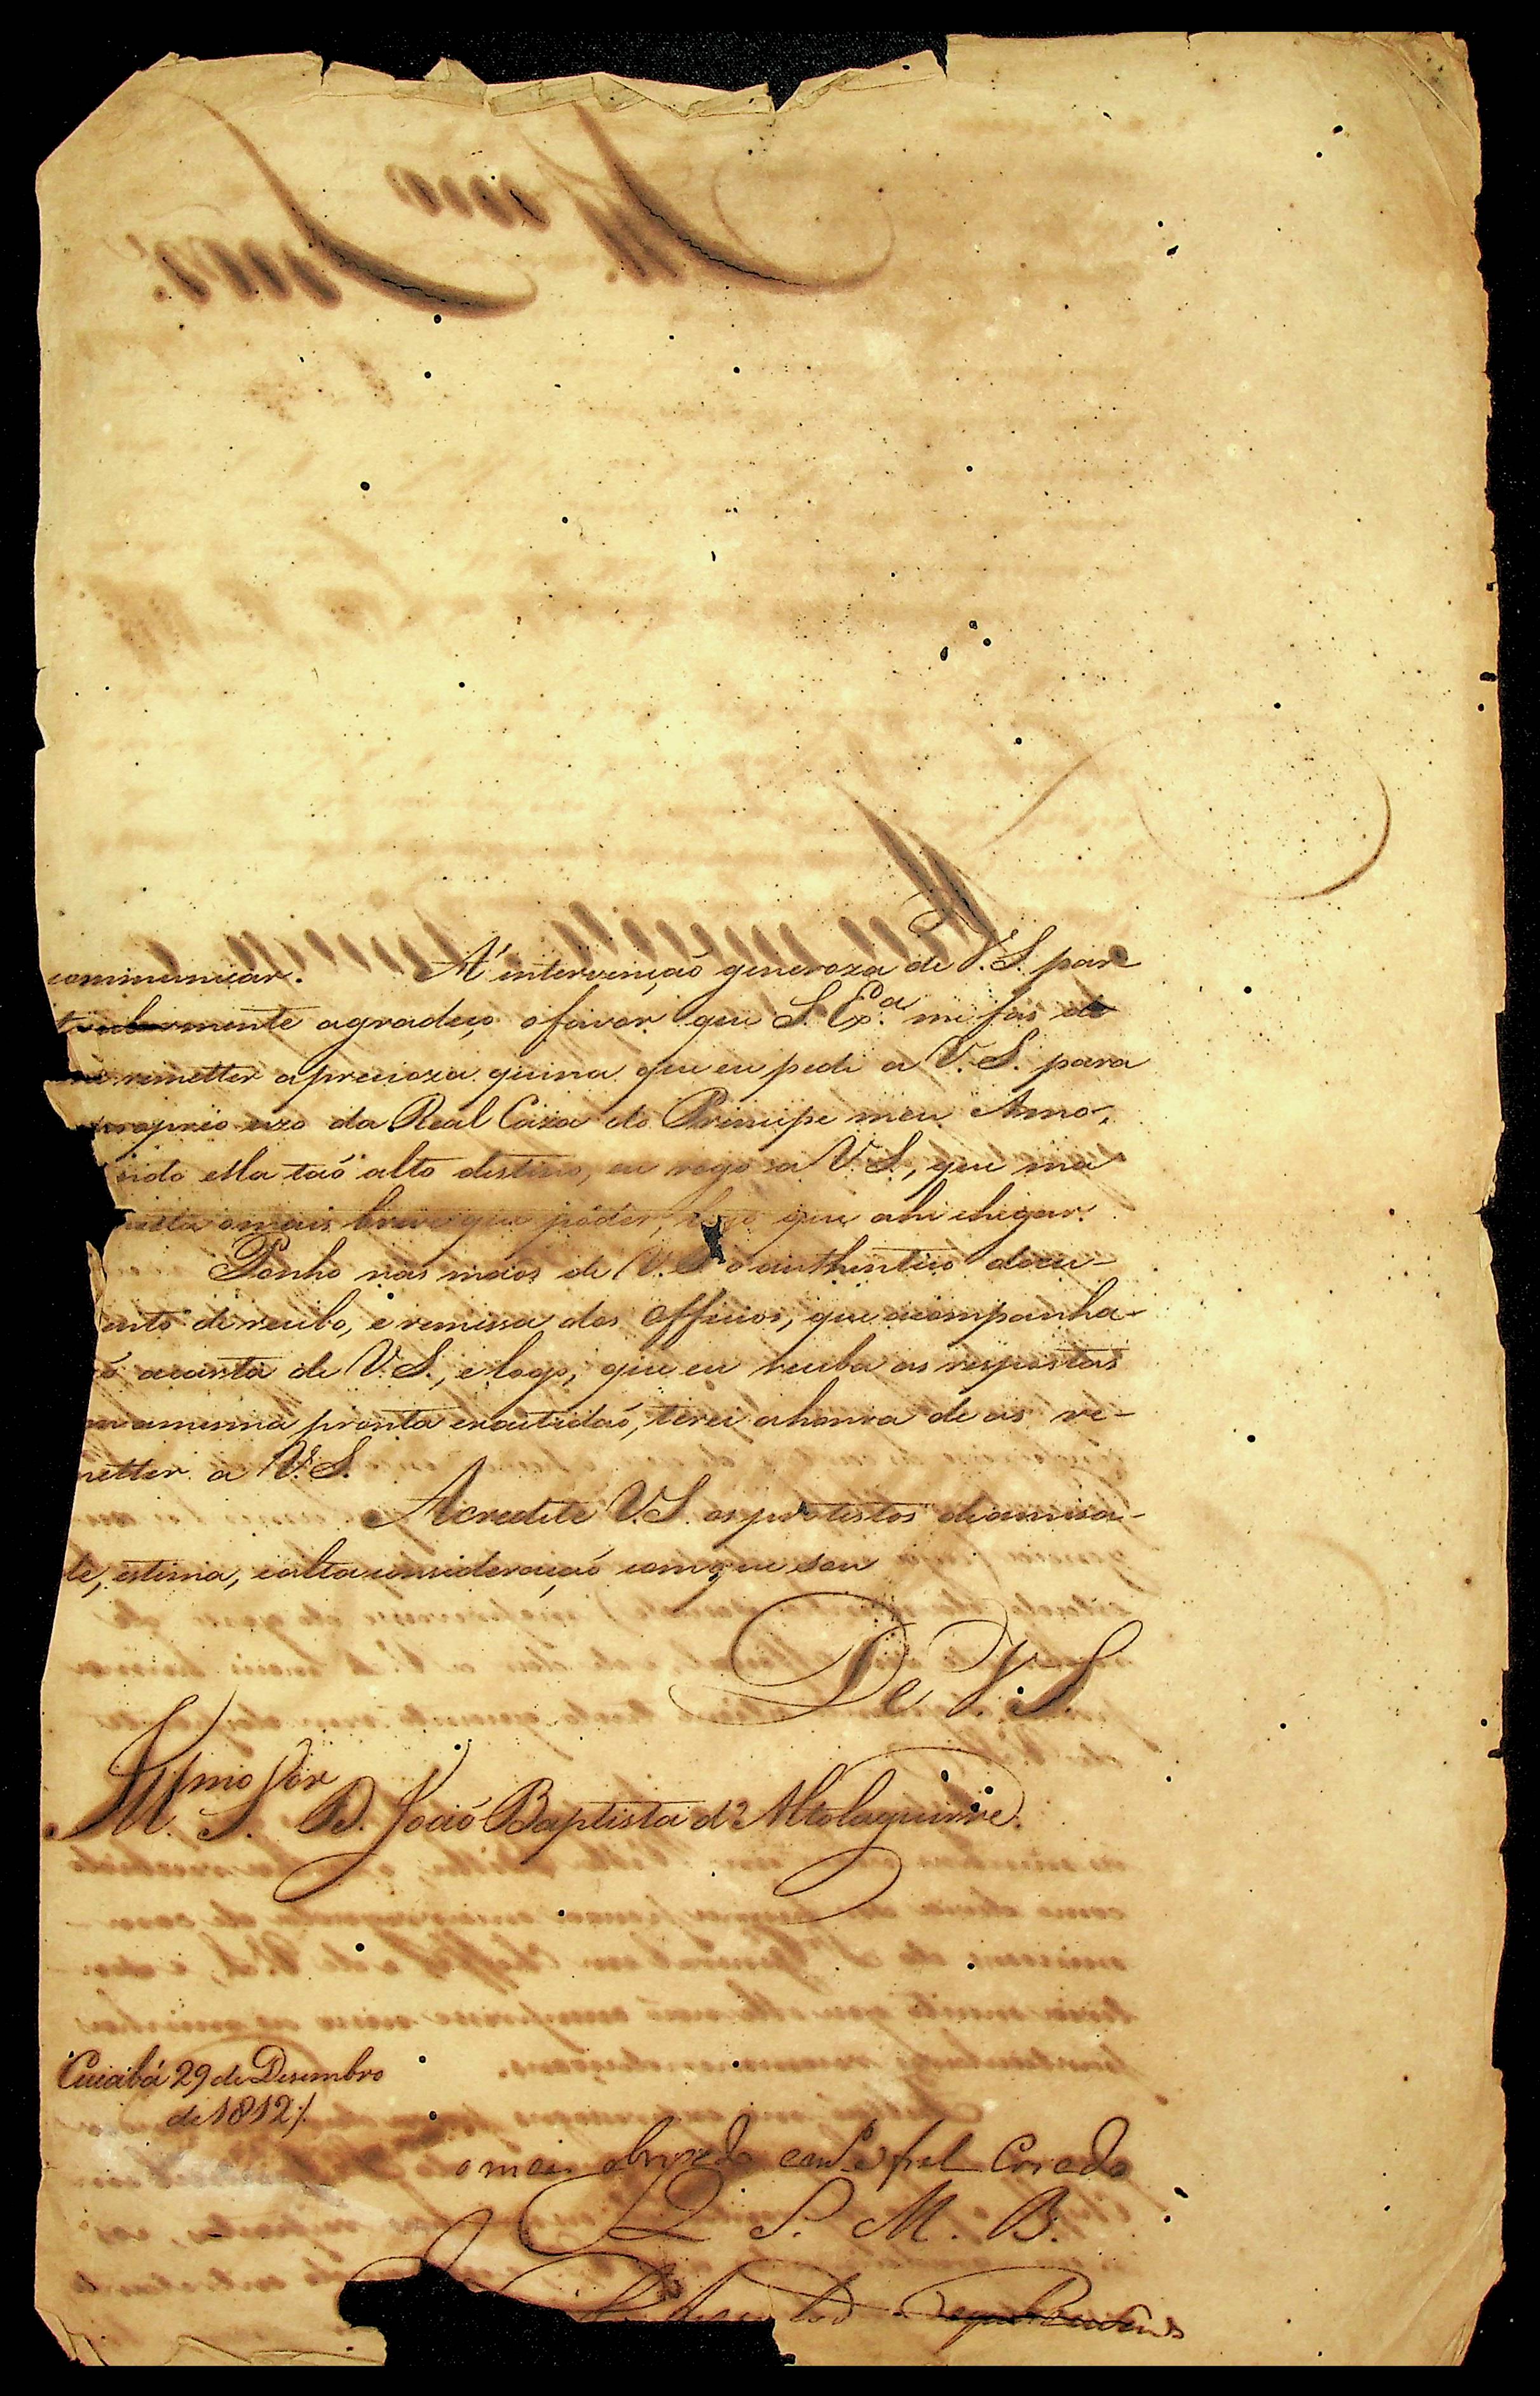 communicar. A' intervenção generoza de V. S. par
agradeço o favor que S. Ex.a me fas de
remetter a precioza quina que eu pedi a V. S. para
proprio uzo da Real Caza do Principe meu Amo,
endo ella taó alto destino, eu rogo a V. S., que ma
o mais breve que pódér, logo que ahi chegar.
Ponho nas maos de V. S. o authentico docu-
ento de recibo, e remissa dos Officios, que acompanha-
ó acarta de V. S., e logo, que eu receba as respostas
amesma pronta exactidaó, terei ahonra de as re-
metter a V. S.
Acredite V. S. os protestos de amisa-
de, estima, e alta consideraçaó com que sou
De V. S.
Ill.mo S.or D. Joaó Baptista d' Altolaguirre.
Cuiabá 29 de Desembro
de 1812 /.
o mais obrigado fiel Criado
Q. S. M. B.